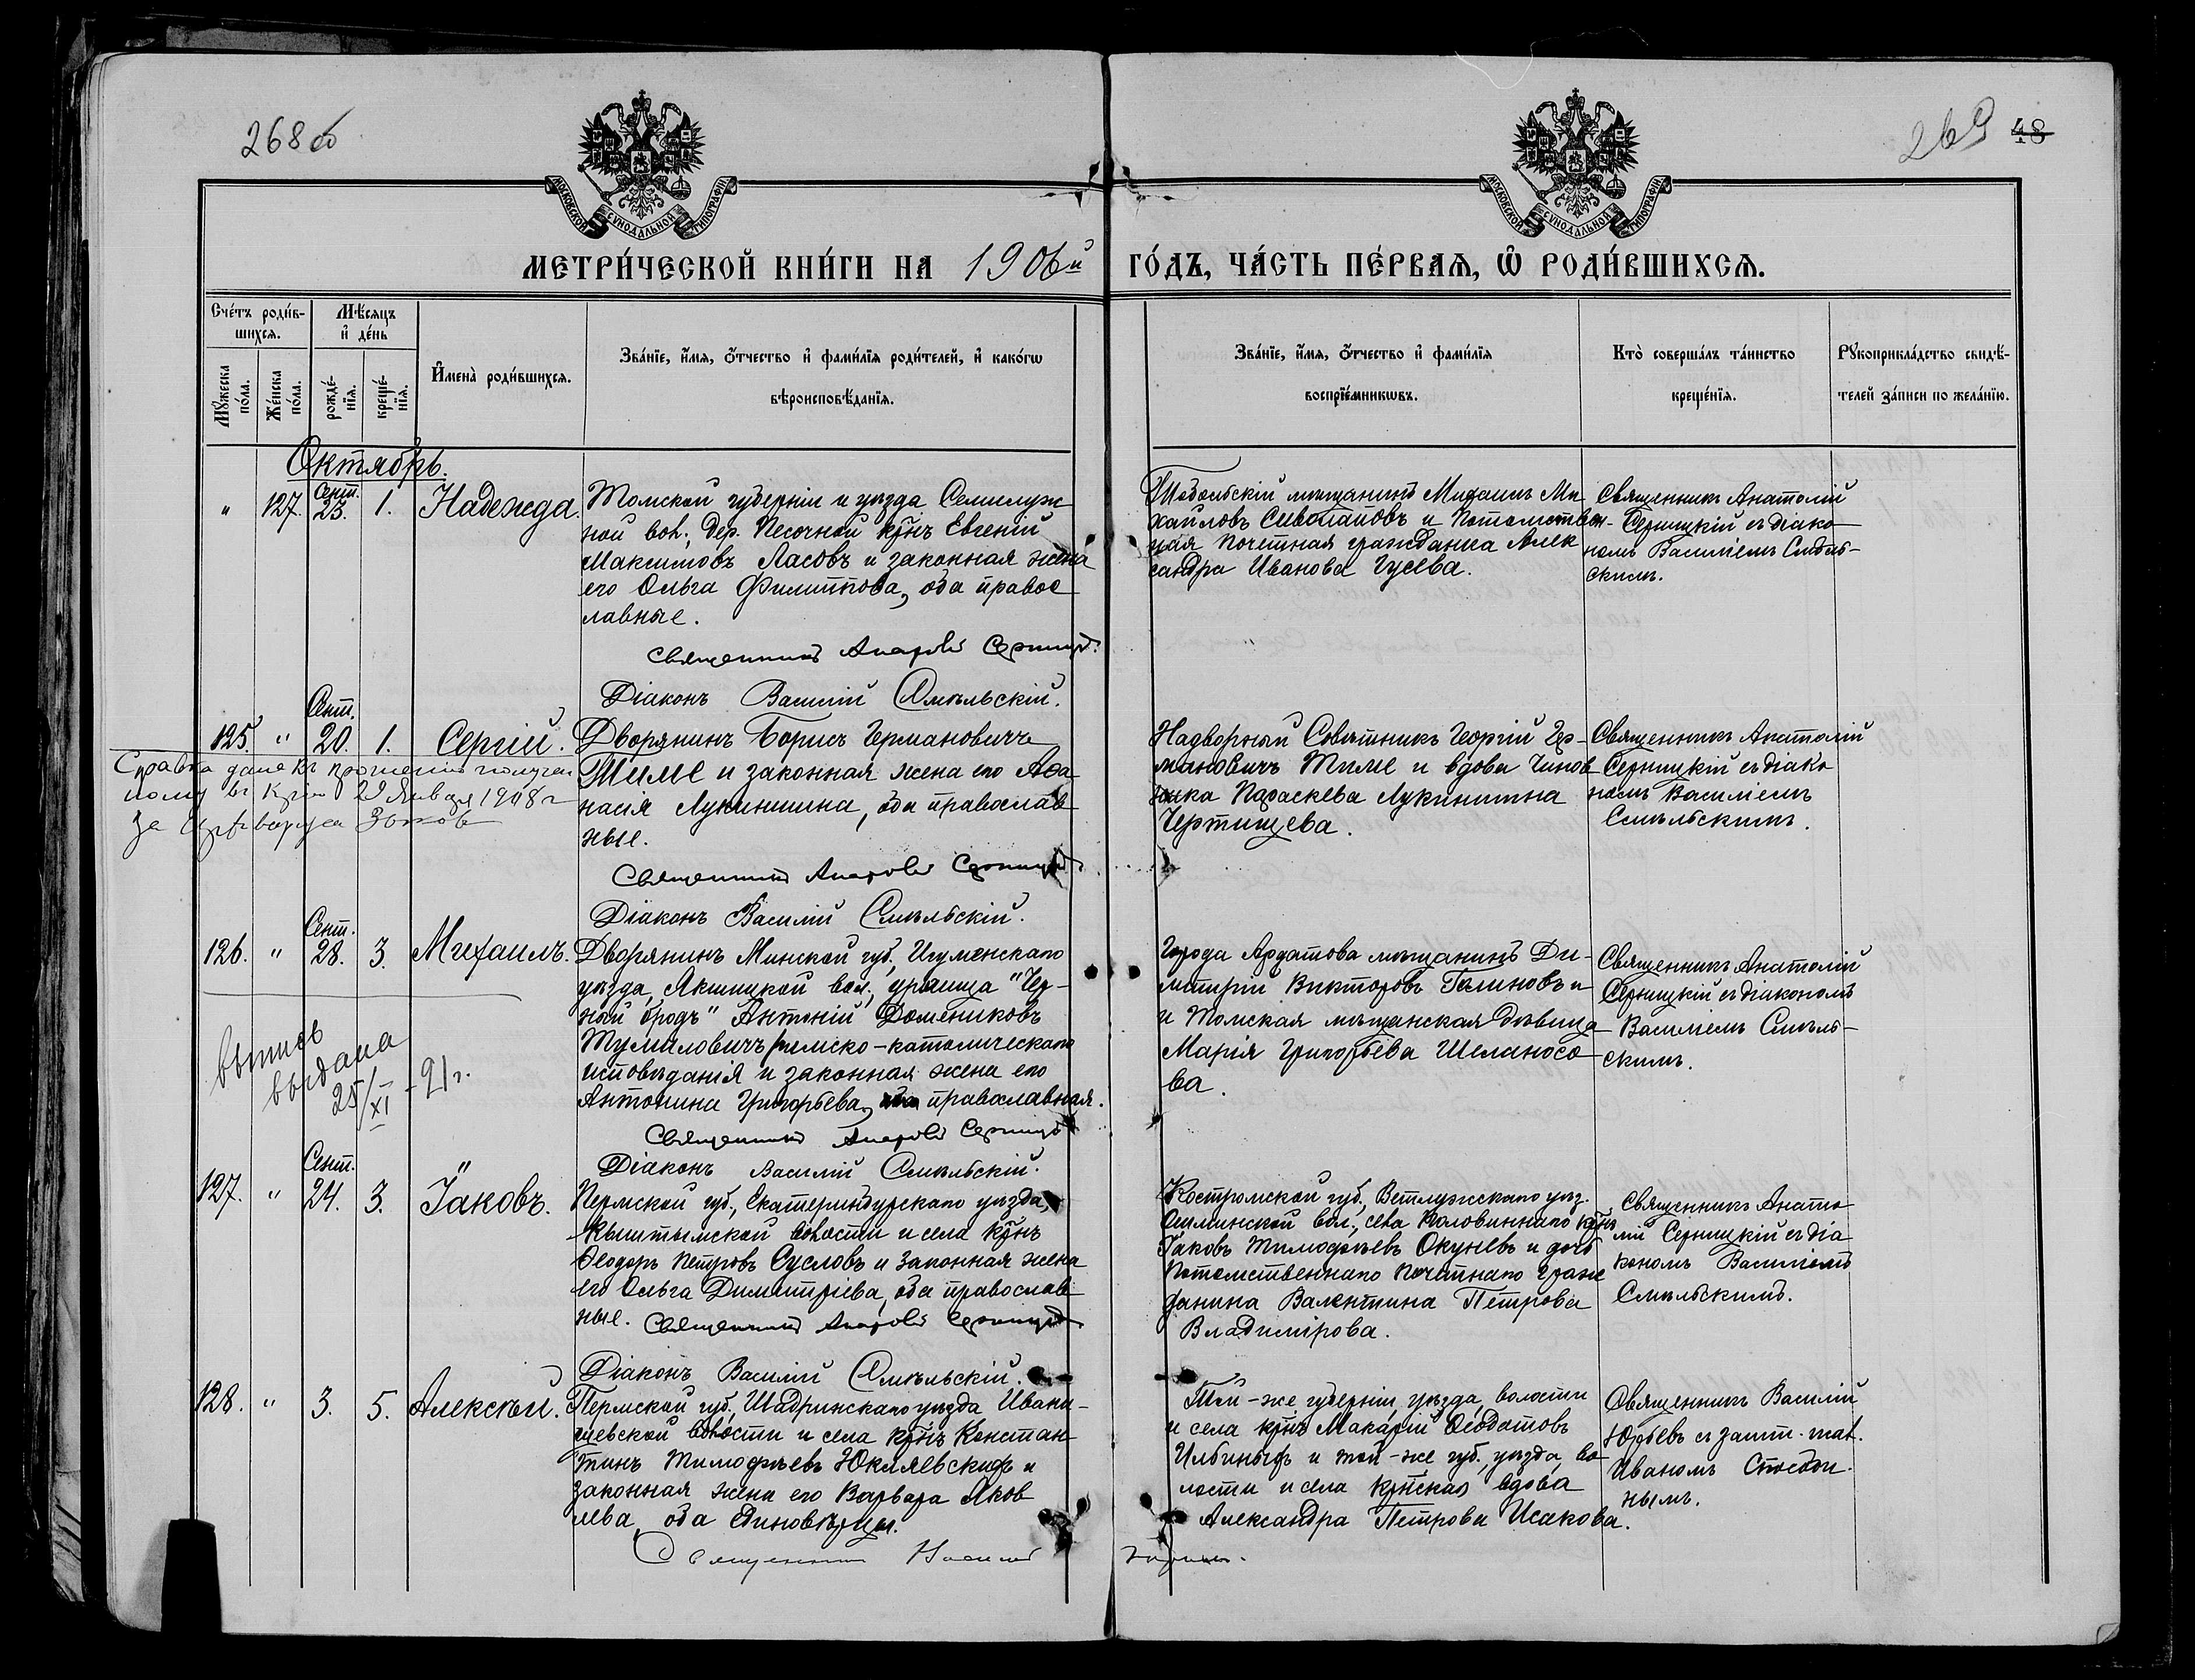 268 об
269 48
МОСКОВСКОЙ СУНОДАЛЬНОЙ ТИПОГРАФІИ
МОСКОВСКОЙ СУНОДАЛЬНОЙ ТИПОГРАФІИ
МЕТРИ́ЧЕСКОЙ КНИ́ГИ НА 1906й ГО́ДЪ, ЧА́СТЬ ПЕ́РВАѦ, Ѡ҆ РОДИ́ВШИХСѦ.
Сче́тъ роди́в-
шихсѧ.
Мѣ́сѧцъ
и҆ де́нь
Мꙋ́жеска
по́ла.
Же́нска
по́ла.
рожде́-
нїѧ.
креще́-
нїѧ.
И҆мена̀ роди́вшихсѧ.
Зва́нїе, и҆́мѧ, ѻ҆́тчество и҆ фами́лїѧ роди́телей, и҆ како́гѡ
вѣроисповѣ́данїѧ.
Зва́нїе, и҆́мѧ, ѻ҆́тчество и҆ фами́лїѧ
воспрїе́мникѡвъ.
Кто̀ соверша́лъ та́инство
креще́нїѧ.
Рꙋкоприкла́дство свидѣ́-
телей за́писи по жела́нїю.
Октябрь.
" 127. Сент. 23. 1. Надежда.
Томской губерніи и уѣзда Семилуж
ной вол., дер. Песочной крнъ Евгеній
Максимовъ Ласовъ и законная жена
его Ольга Филиппова, оба правос
лавные.
Священникъ Анатолій Серницкій
Діаконъ Василій Смѣльскій.
Тобольскій мѣщанинъ Михаилъ Ми
хайловъ Сиволаповъ и Потомствен-
ная почетная гражданка Алек
сандра Иванова Гусева.
Священникъ Анатолій
Серницкій съ діако
номъ Василіемъ Смѣль-
скимъ.
125. " Сент. 20. 1. Сергій.
Дворянинъ Борисъ Германовичъ
Тиме и законная жена его Афа
насія Лукинишна, оба православ
ные.
Священникъ Анатолій Серницкій
Діаконъ Василій Смѣльскій.
Надворный Совѣтникъ Георгій Гер-
мановичъ Тиме и вдова Чинов
ника Параскева Лукинишна
Чертищева.
Священникъ Анатолій
Серницкій съ діако
номъ Василіемъ
Смѣльскимъ.
Справка дана къ прошенію получен
ному 29 Января 1908 г
за
126. " Сент. 28. 3. Михаилъ.
Дворянинъ Минской губ., Игуменскаго
уѣзда, Якшицкой вол., урочища "Чер-
ный бродъ" Антоній Домениковъ
Тумиловичъ римско-католическаго
исповѣданія и законная жена его
Антонина Григорьева, православная.
Священникъ Анатолій Серницкій
Діаконъ Василій Смѣльскій.
Города Ардатова мѣщанинъ Ди-
митрій Викторовъ Галиновъ и
и Томская мѣщанская дѣвица
Марія Григорьева Шеланосо
ва.
Священникъ Анатолій
Серницкій съ діакономъ
Василіемъ Смѣль-
скимъ.
выпись
выдана
25/XI - 21 г.
127. " Сент. 24. 3. Іаковъ.
Пермской губ., Екатеринбургскаго уѣзда,
Кыштымской волости и села крнъ
Ѳеодоръ Петровъ Сусловъ и законная жена
его Ольга Димитріева, оба православ
ные. Священникъ Анатолій Серницкій
Діаконъ Василій Смѣльскій.
Костромской губ., Ветлужскаго уѣз.
вол., села крнъ
Іаковъ Тимофѣевъ Окуневъ и дочь
Потомственнаго Почетнаго граж
данина Валентина Петрова
Владимірова.
Священникъ Анато
лій Серницкій съ діа
кономъ Василіемъ
Смѣльскимъ.
128. " 3. 5. Алексѣй.
Пермской губ., Шадринскаго уѣзда Ивани-
щевской волости и села крнъ Констан
тинъ Тимофѣевъ Юкляевскихъ и
законная жена его Варвара Яков
лева, оба единовѣрцы.
Священникъ Василій Юрьевъ.
Той-же губерніи, уѣзда, волости
и села крнъ Макарій Ѳеодотовъ
Ильиныхъ и той-же губ., уѣзда, во
лости и села крнская вдова
Александра Петрова Исакова.
Священникъ Василій
Юрьевъ съ
Иваномъ
нымъ.